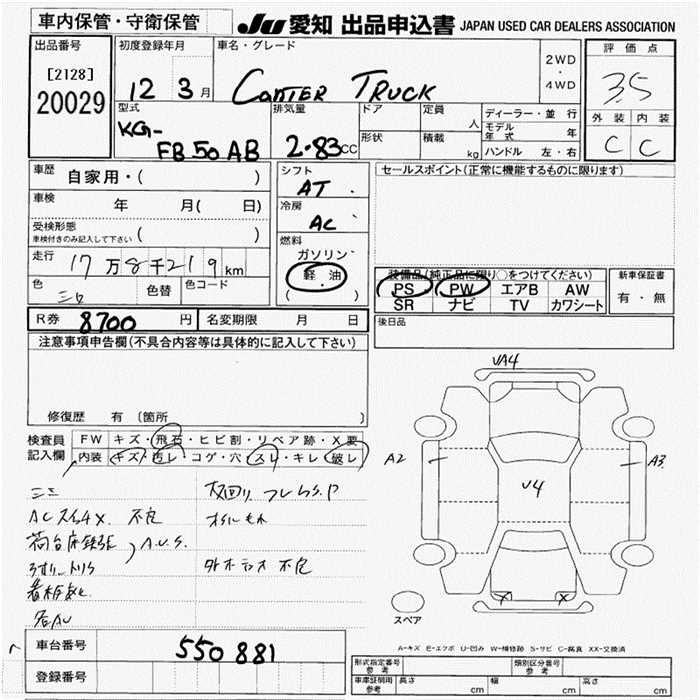 車内保管・守衛保管
JU 愛知 出品申込書 JAPAN USED CAR DEALERS ASSOCIATION
出品番号
[2128]
20029
初度登録年月
12 3月
車名・グレード
CANTER TRUCK
2WD
・
4WD
評価点
3.5
外装 内装
C C
型式
KG-
FB50AB
排気量
2.83CC
ドア
形状
定員
人
積載
kg
ディーラー・並行
モデル年式 年
ハンドル 左・右
車歴 自家用・( )
車検 年 月( 日)
受検形態
車検付きのみ記入して下さい ( )
走行 17万8千219km
色 色替 色コード
シフト
AT
冷房
AC
燃料
ガソリン
軽油
( )
セールスポイント(正常に機能するものに限ります)
装備品(純正品に限り○をつけてください)
PS PW エアB AW
SR ナビ TV カワシート
新車保証書
有・無
R券 8700円
名変期限 月 日
後日品
注意事項申告欄(不具合内容等は具体的に記入して下さい)
修復歴 有 〔箇所 〕
検査員記入欄
FW キズ・飛石・ヒビ割・リペア跡・X要
内装 キズ・汚レ・コゲ・穴・スレ・キレ・破レ
不良
荷台床鉄張
A.U.S.
不良
VA4
A2
V4
A3
X X
スペア
A-キズ E-エクボ U-凹み W-補修跡 S-サビ C-腐食 XX-交換済
車台番号 550881
登録番号
型式指定番号
参考
類別区分番号
参考
車庫証明用
参考
長さ cm 幅 cm 高さ cm